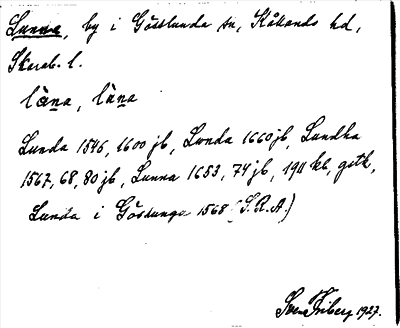 Lunna, by i Gösslunda sn, Kållands hd,
Skarab. l.
lɷ̀na, lɷ̀na
Lunda 1546, 1600 jb, Lunda 1660 jb, Lundha
1567, 68, 80 jb, Lunna 1653, 74 jb, 1911 kb, gstk,
Lunda i Göslunga 1568 (S.R.A.)
Sven Friberg 1927.